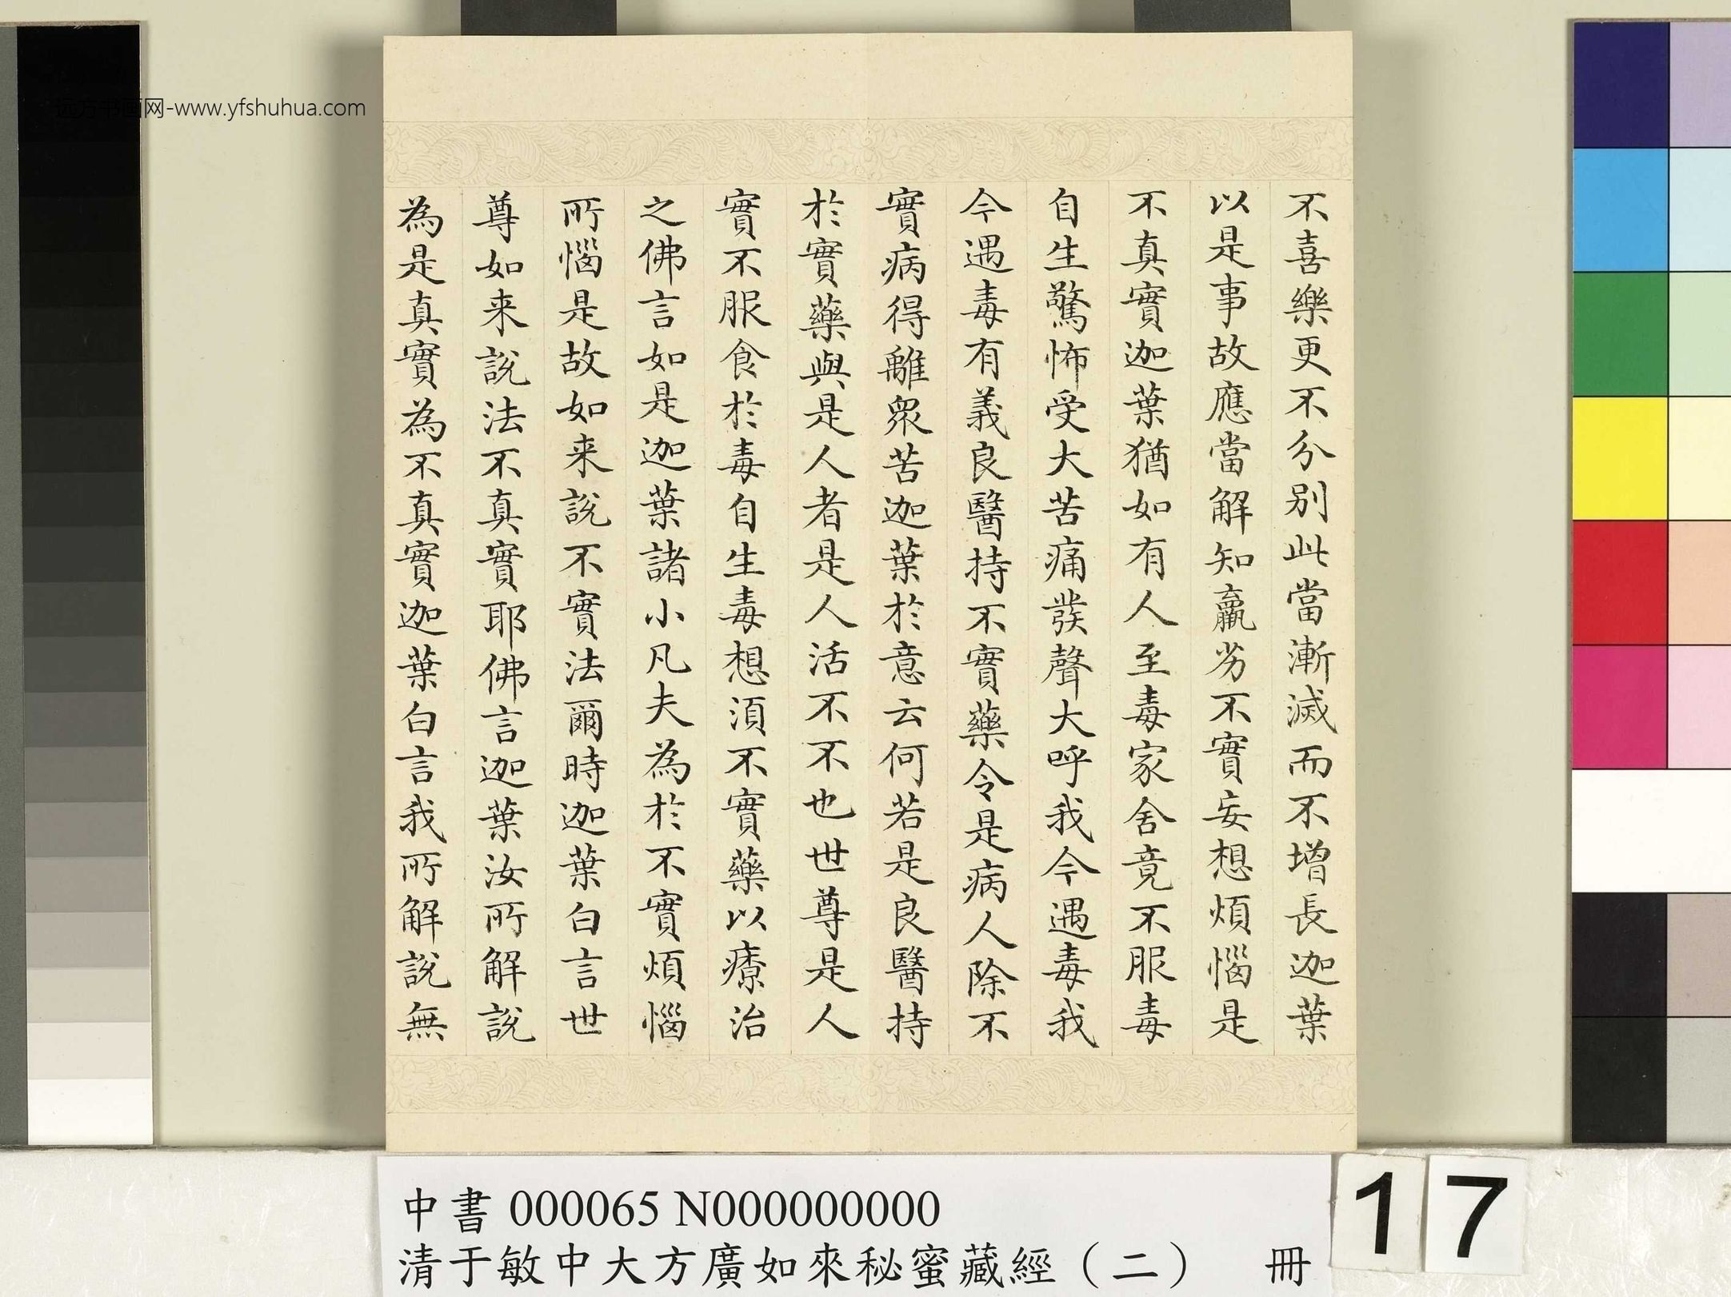 不喜樂更不分別此當漸滅而不增長迦葉
以是事故應當解知羸劣不實妄想煩惱是
不真實迦葉猶如有人至毒家舍竟不服毒
自生驚怖受大苦痛發聲大呼我今遇毒我
今遇毒有義良醫持不實藥令是病人除不
實病得離眾苦迦葉於意云何若是良醫持
於實藥與是人者是人活不不也世尊是人
實不服食於毒自生毒想須不實藥以療治
之佛言如是迦葉諸小凡夫為於不實煩惱
所惱是故如来說不實法爾時迦葉白言世
尊如来說法不真實耶佛言迦葉汝所解說
為是真實為不真實迦葉白言我所解說無
远方书画网-www.yfshuhua.com
中書 000065 N000000000
清于敏中大方廣如來秘蜜藏經（二） 冊
17